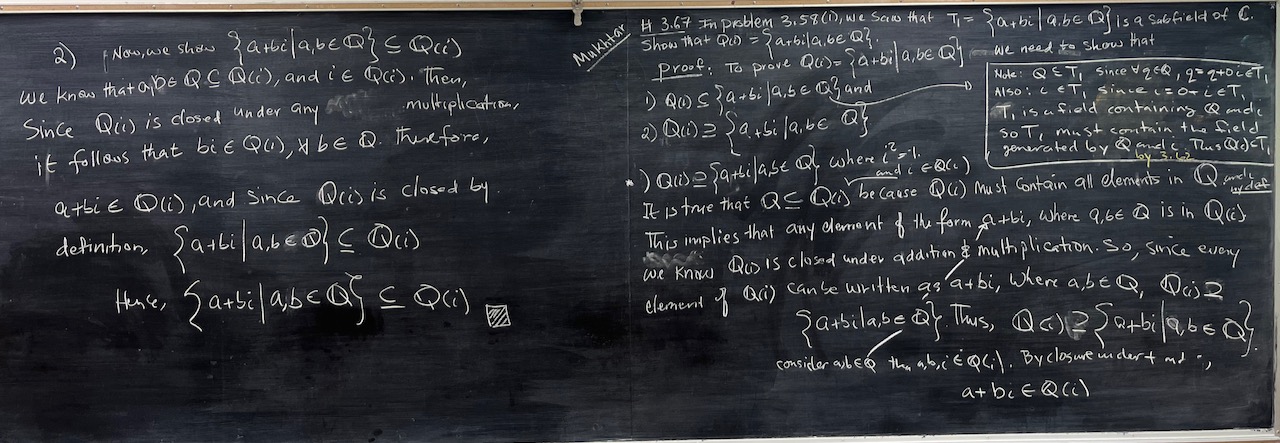 2) Now, we show {a+bi | a,b ∈ ℚ} ⊆ ℚ(i)
We know that a,b ∈ ℚ ⊆ ℚ(i), and i ∈ ℚ(i). Then,
Since ℚ(i) is closed under any multiplication,
it follows that bi ∈ ℚ(i), ∀ b ∈ ℚ. therefore,
a+bi ∈ ℚ(i), and since ℚ(i) is closed by
definition, {a+bi | a,b ∈ ℚ} ⊆ ℚ(i)
Hence, {a+bi | a,b ∈ ℚ} ⊆ ℚ(i)
Mukhtar
# 3.67 In problem 3.58(1), we saw that T₁ = {a+bi | a,b ∈ ℚ} is a subfield of ℂ.
Show that ℚ(i) = {a+bi | a,b ∈ ℚ}.
proof: To prove ℚ(i) = {a+bi | a,b ∈ ℚ} we need to show that
1) ℚ(i) ⊆ {a+bi | a,b ∈ ℚ} and
2) ℚ(i) ⊇ {a+bi | a,b ∈ ℚ}
Note: ℚ ⊆ T₁ since ∀ q ∈ ℚ, q = q+0i ∈ T₁
Also: i ∈ T₁ since i = 0+i ∈ T₁
T₁ is a field containing ℚ and i
so T₁ must contain the field
generated by ℚ and i. Thus ℚ(i) ⊆ T₁
by 3.62
*) ℚ(i) ⊇ {a+bi | a,b ∈ ℚ} where i² = -1.
and i ∈ ℚ(i)
It is true that ℚ ⊆ ℚ(i) because ℚ(i) must contain all elements in ℚ and i by def
This implies that any element of the form a+bi, where a,b ∈ ℚ is in ℚ(i)
we know ℚ(i) is closed under addition & multiplication. So, since every
element of ℚ(i) can be written as a+bi, where a,b ∈ ℚ, ℚ(i) ⊇
{a+bi | a,b ∈ ℚ}. Thus, ℚ(i) ⊇ {a+bi | a,b ∈ ℚ}.
consider a,b ∈ ℚ then a,b,i ∈ ℚ(i). By closure under + and ·,
a+bi ∈ ℚ(i)